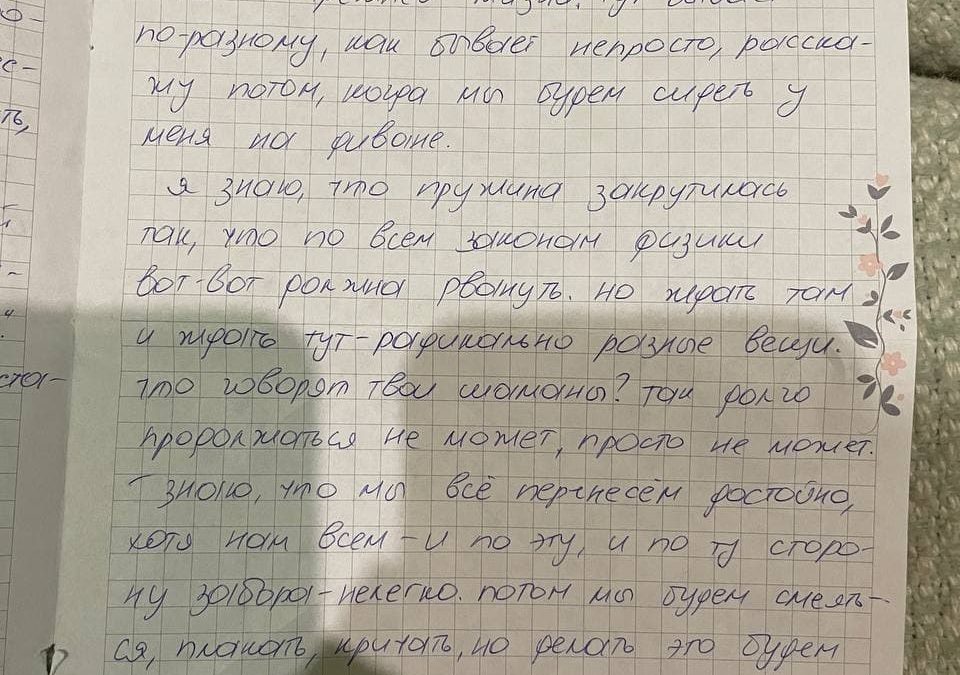 о-
по-разному, как бывает непросто, расска-
с-
жу потом, когда мы будем сидеть у
ть,
меня на диване.
я знаю, что пружина закрутилась
так, что по всем законам физики
вот-вот должна рвануть. но ждать там
и ждать тут - радикально разные вещи.
ста-
что говорят твои шаманы? так долго
продолжаться не может, просто не может.
знаю, что мы всё перенесём достойно,
хотя нам всем - и по эту, и по ту сторо-
ну забора - нелегко. потом мы будем смеять-
ся, плакать, кричать, но делать это будем